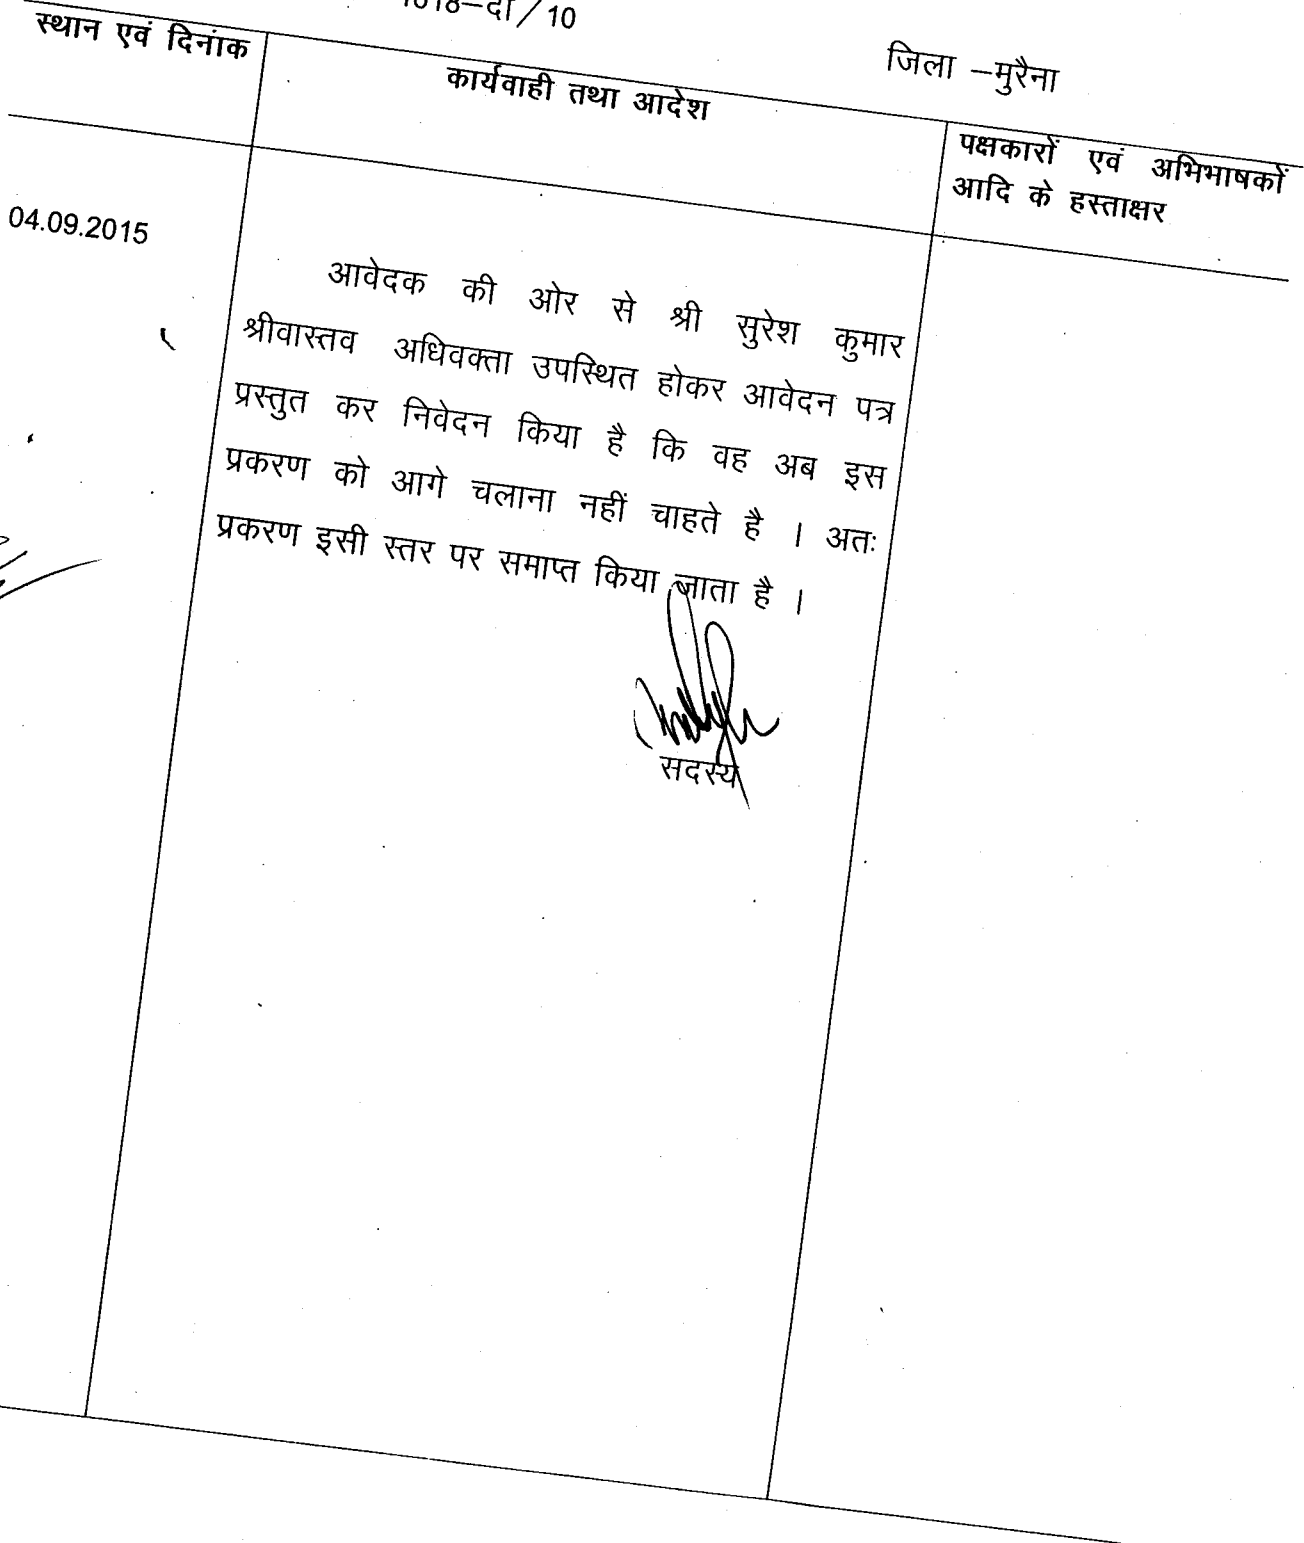 जिला –मुरैना
स्थान एवं दिनांक
कार्यवाही तथा आदेश
पक्षकारों एवं अभिभाषकों
आदि के हस्ताक्षर
04.09.2015
आवेदक की ओर से श्री सुरेश कुमार
श्रीवास्तव अधिवक्ता उपस्थित होकर आवेदन पत्र
प्रस्तुत कर निवेदन किया है कि वह अब इस
प्रकरण को आगे चलाना नहीं चाहते है । अतः
प्रकरण इसी स्तर पर समाप्त किया जाता है ।
सदस्य